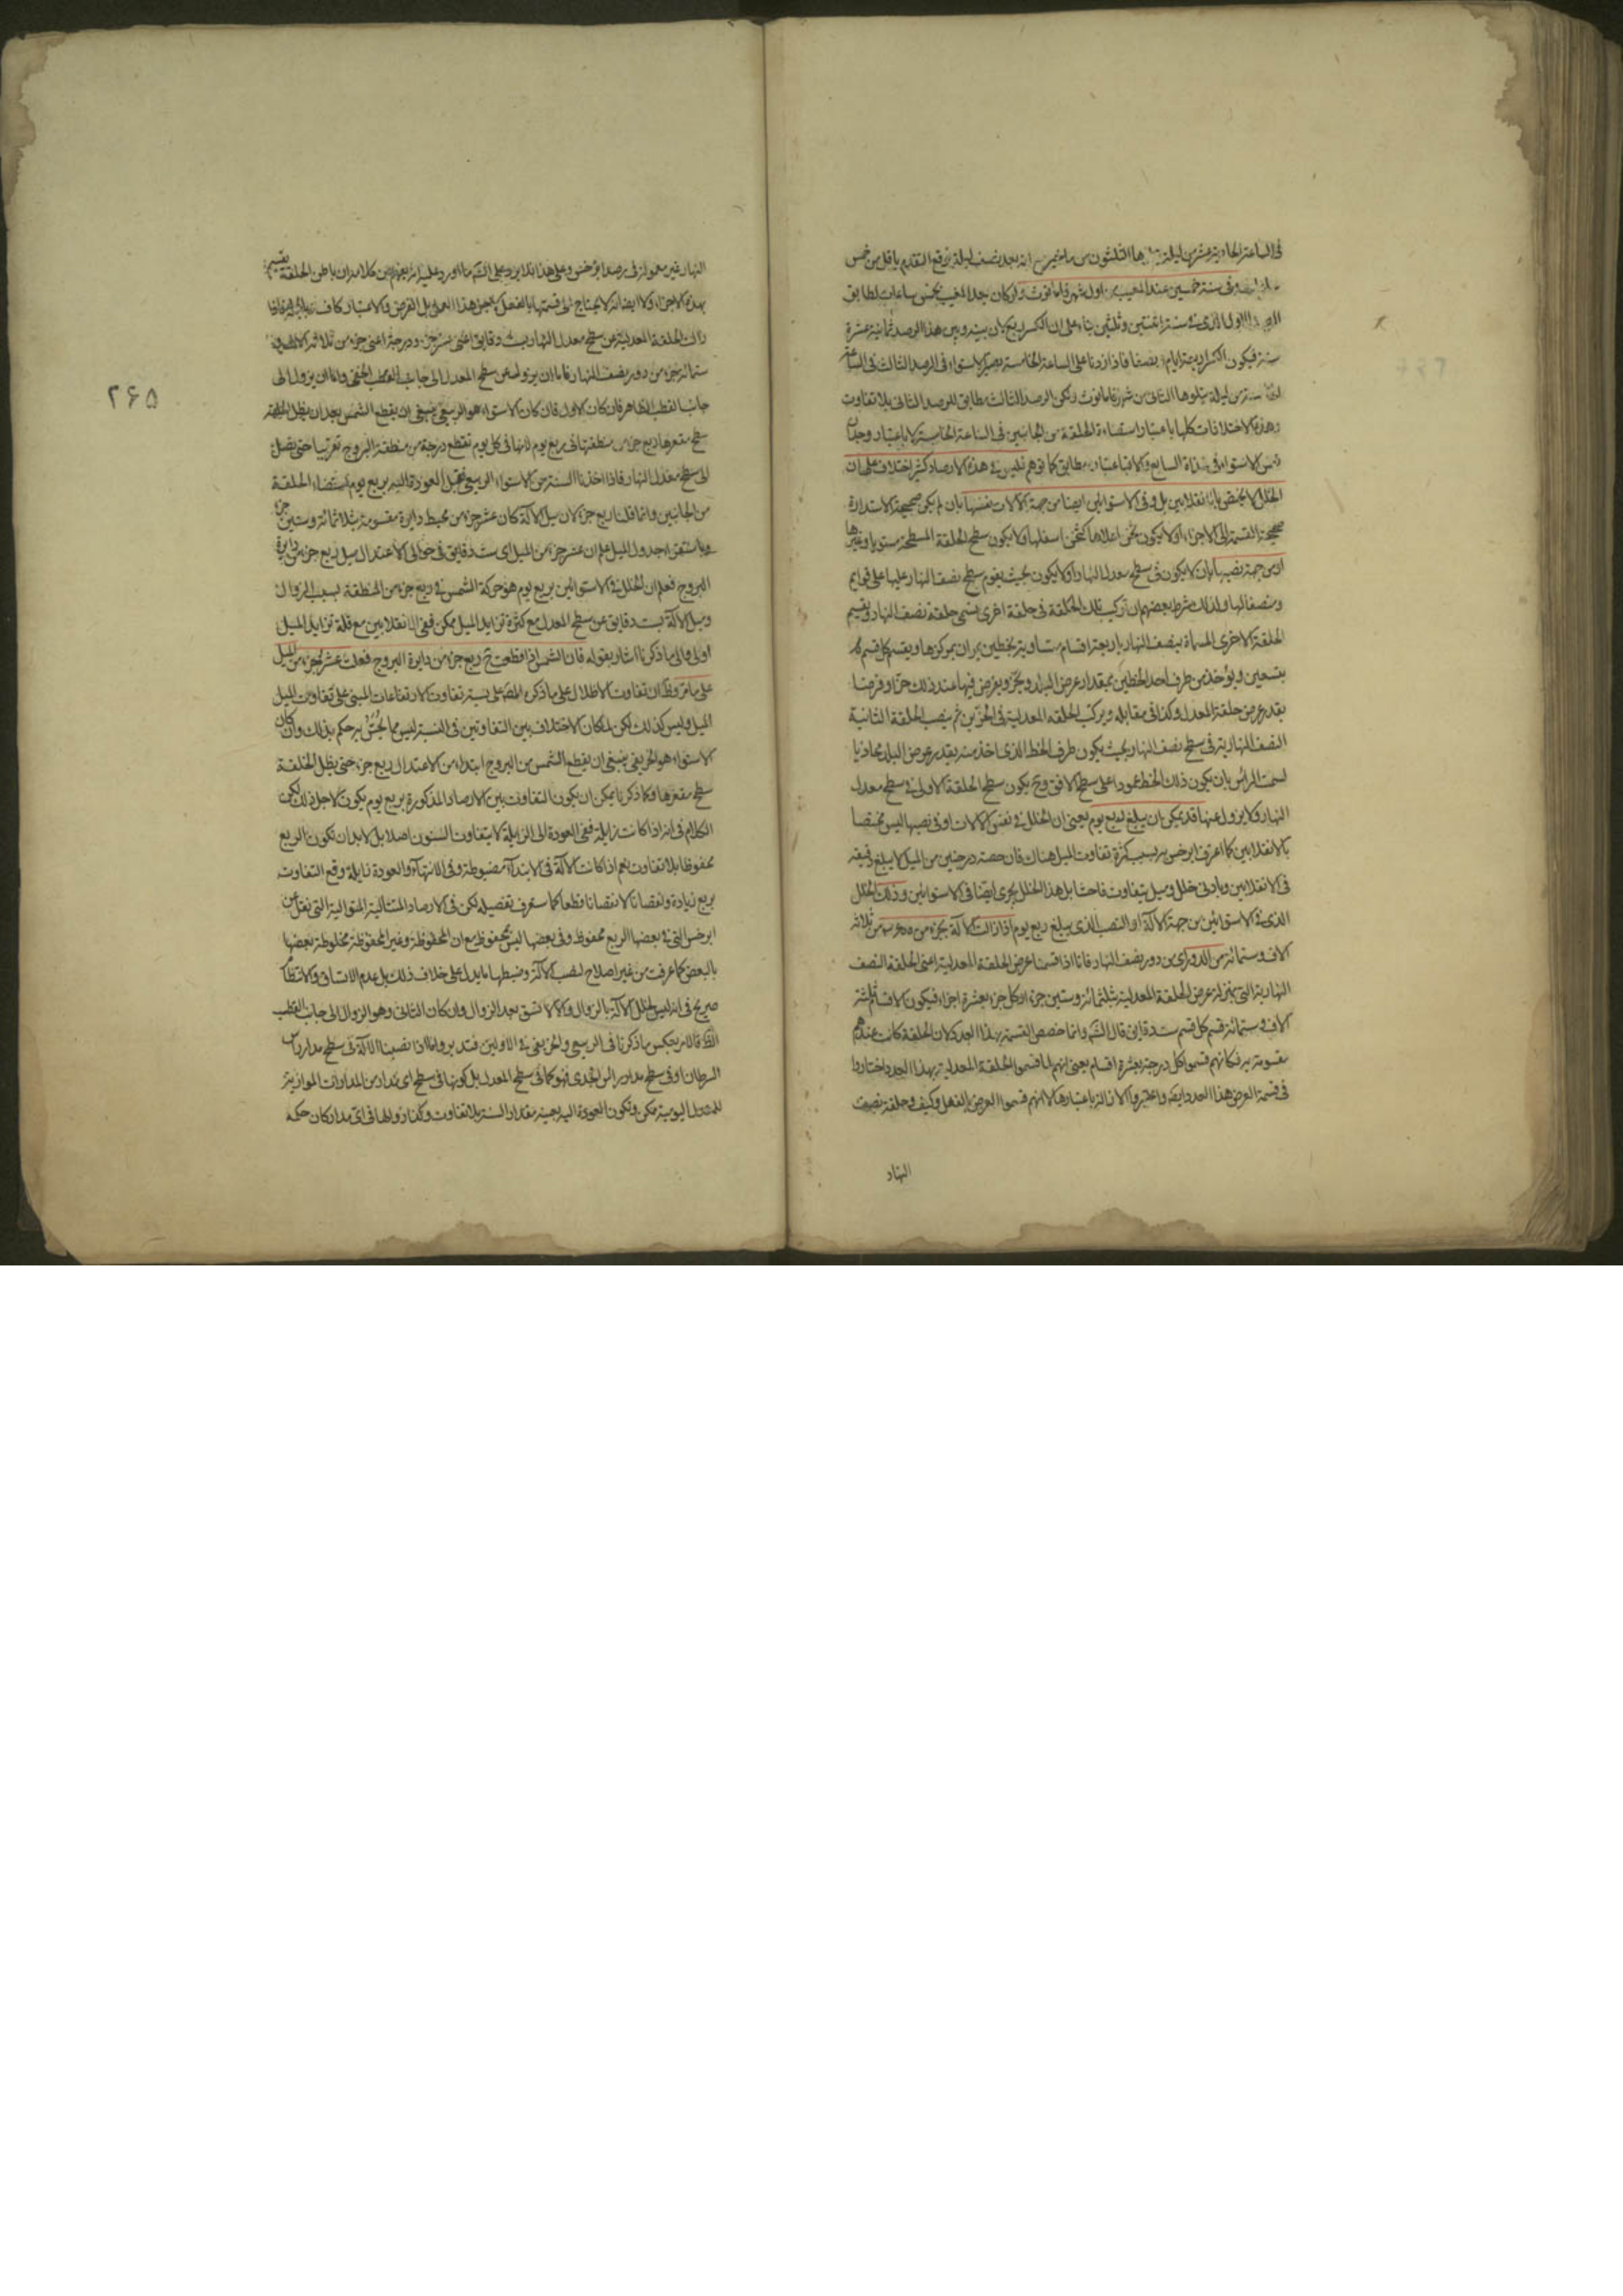 في الساعة الحادية عشر من ليلة يتلوها الثلثون من ماخير من انه بعد نصف ليلة يرفع التقدم باقل من خمس
وفي سنة خمسين عند المغيب من اول شهر فامانوث ولو كان بعد المغيب بخمس ساعات لطابق
الاول الذي في سنة اثنتين وثلثين بناء على ان الكسر ربع كان بينه وبين هذا الرصد ثمانية عشرة
سنة فيكون الكسر اربعة ايام ونصفا فاذا زدنا على الساعة الخامسة يصير الاستواء في الرصد الثالث في الساعة
من ليلة يتلوها الثاني من شهر فامانوث ولكن الرصد الثالث مطابق للرصد الثاني بلا تفاوت
وهذه الاختلافات كلها باعتبار استضاءة الحلقة من الجانبين في الساعة الخامسة لا باعتبار وجدان
نفس الاستواء في السابع والا فباعتباره مطابق كما توهم فليس في هذه الارصاد كثير اختلاف على ان
الخلل لا يختص بالانقلابين بل وفي الاستوائين ايضا من جهة الالات نفسها بان لم يكن صحيحة الاستدارة
صحيحة القسمة الى الاجزاء او لا يكون ثخن اعلاها كثخن اسفلها ولا يكون سطح الحلقة المسطحة مستويا وغيرها
او من جهة نصبها بان لا يكون في سطح معدل النهار او لا يكون بحيث يقوم سطح نصف النهار عليها على قوايم
وينصفها ولذلك شرط بعضهم ان تركيب تلك الحلقة في حلقة اخرى يسمى حلقة نصف النهار ويقسم
الحلقة الاخرى المسماة بنصف النهار باربعة اقسام متساوية بخطين يمران بمركزها ويقسم كل قسم
بتسعين ويؤخذ من طرف احد الخطين بمقدار عرض البلد ويحز ويفرض فيها عند ذلك حزا وفرضا
بقدر عرض حلقة المعدل وكذا في مقابله ويركب الحلقة المعدلية في الحزين ثم ينصب الحلقة الثانية
النصف النهارية في سطح نصف النهار بحيث يكون طرف الخط الذي اخذ منه بقدر عرض البلد محاذيا
لسمت الراس بان يكون ذلك الخط عمودا على سطح الافق وح يكون سطح الحلقة الاولى في سطح معدل
النهار ولا يزول عنها قد يمكن ان يبلغ لربع يوم يعني ان الخلل في نفس الالات او في نصبها ليس مختصا
بالانقلابين كما اعترف ابرخس به بسبب كثرة تفاوت الميل هناك فان حصة درجتين من الميل لا يبلغ دقيقة
في الانقلابين وبادنى خلل وميل يتفاوت فاحشا بل هذا الخلل يجري ايضا في الاستوائين وذلك الخلل
الذي في الاستوائين من جهة الآلة او النصب الذي يبلغ ربع يوم اذا زالت الآلة بجزء من ثلاثة
الاف وستمائة من الدور اي من دور نصف النهار فانا اذا قسمنا عرض الحلقة المعدلية اعني الحلقة النصف
النهارية التي بمنزلة عرض الحلقة المعدلية بثلثمائة وستين جزء او كل جزء بعشرة اجزاء فيكون الاقسام ثلثة
الاف وستمائة قسم كل قسم ست دقايق قال الش وانما خصص القسمة بهذا العدد لان الحلقة كانت عندهم
مقسومة به فكانهم قسموا كل درجة بعشرة اقسام يعني انهم لما قسموا الحلقة المعدلية بهذا العدد اختاروا
في قسمة العرض هذا العدد ايضا واعتبروا الازالة باعتبارها لا انهم قسموا العرض بالفعل وكيف وحلقة نصف
النهار
۲۶۵
النهار غير معمولة في رصد ابرخس وعلى هذا فلا يرد على الش ما اورد عليه انه يفهم من كلامه ان باطن الحلقة يقسم
بهذه الاجزاء ولا ايضا انه لا يحتاج الى قسمتها بالفعل لاجل هذا العمل بل الفرض والاعتبار كاف
زالت الحلقة المعدلية عن سطح معدل النهار بست دقايق اعني عشر جزء ودرجة اعني جزء من ثلاثة الاف
ستمائة جزء من دور نصف النهار فاما ان يزول عن سطح المعدل الى جانب القطب الخفي واما ان يزول الى
جانب القطب الظاهر فان كان الاول فان كان الاستواء هو الربيعي ينبغي ان يقطع الشمس بعد ان يظل الحلقة
سطح مقعرها ربع جزء من منطقتها في ربع يوم لانها في كل يوم تقطع درجة من منطقة البروج تقريبا حتى يصل
الى سطح معدل النهار فاذا اخذنا السنة من الاستواء الربيعي فقبل العودة اليه بربع يوم استضاء الحلقة
من الجانبين وانما قلنا ربع جزء لان ميل الآلة كان عشر جزء من محيط دايرة مقسومة بثلاثمائة وستين جزء
وباستقراء جدول الميل علم ان عشر جزء من الميل اي ست دقايق في حوالى الاعتدال ميل ربع جزء من دايرة
البروج فعلم ان الخلل في الاستوائين بربع يوم هو حركة الشمس في ربع جزء من المنطقة بسبب الزوال
وميل الآلة بست دقايق عن سطح المعدل مع كثرة تزايد الميل ممكن ففي الانقلابين مع قلة تزايد الميل
اولى والى ما ذكرنا اشار بقوله فان الشمس اذا قطعت ح ربع جزء من دايرة البروج فعلت عشر جزء من الميل
على ما مر وظ ان تفاوت الاظلال على ما ذكره المص على نسبة تفاوت الارتفاعات المبني على تفاوت الميل
الميل وليس كذلك لكن لما كان الاختلاف بين التفاوتين في النسبة ليس مما يحس به حكم بذلك وان كان
الاستواء هو الخريفي ينبغي ان يقطع الشمس من البروج ابتداء من الاعتدال ربع جزء حتى يظل الحلقة
سطح مقعرها وكما ذكرنا يمكن ان يكون التفاوت بين الارصاد المذكورة بربع يوم يكون لاجل ذلك لكن
الكلام في انه اذا كانت زايلة ففي العودة الى الزايلة لا يتفاوت السنون اصلا بل لا بد ان تكون الربع
محفوظا بلا تفاوت نعم اذا كانت الآلة في الابتداء مضبوطة وفي الانتهاء والعودة زايلة وقع التفاوت
بربع زيادة ونقصانا لا نقصانا فقط كما ستعرف تفصيله لكن في الارصاد المتتالية المتوالية التي نقل عن
ابرخس التي في بعضها الربع محفوظ وفي بعضها ليس بمحفوظ مع ان المحفوظة وغير المحفوظة مخلوطة بعضها
بالبعض كما عرفت من غير اصلاح لنصب الآلة وضبطها ما يدل على خلاف ذلك بل عدم الاتساق والانتظام
صريح في انه ليس لخلل الآلة بالزوال والا لاتسق بعد الزوال وان كان الثاني وهو الزوال الى جانب القطب
الظ فالامر بعكس ما ذكرنا في الربيعي والخريفي في الاولين فتدبر واما اذا نصبنا الآلة في سطح مدار راس
السرطان او في سطح مدار راس الجدي فهو كما في سطح المعدل بل كونها في سطح اي مدار من المدارات الموازية
للمعدل اليومية ممكن وتكون العودة اليه بعينه مقدار السنة بلا تفاوت وكذا زوالها في اي مدار كان حكمه